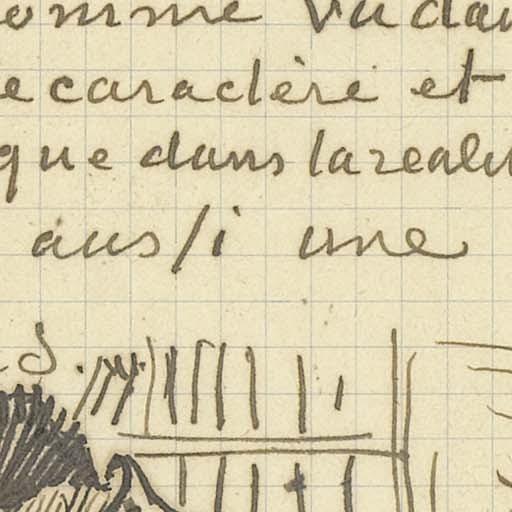 omme vu dan
e caractère et
que dans la realit
aussi une
s.